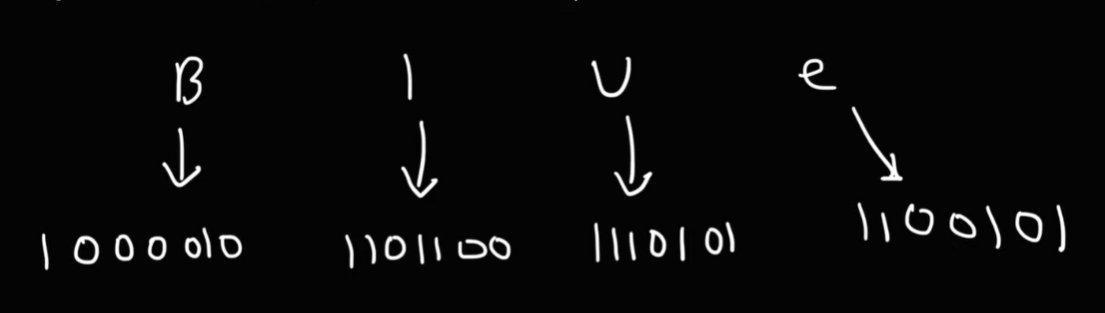 B l u e
1000010 1101100 1110101 1100101